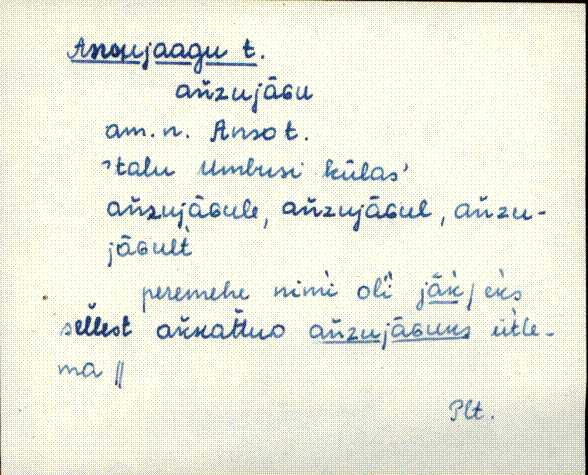 Ansujaagu t.
an̆zujāɢu
am. n. Anso t.
'talu Umbusi külas'
an̆zujāɢule, an̆zujāɢul, an̆zu-
jāɢult̀
peremehe nimì olĭ jāk̀ / eks
sĕl̆lest ak̆kat̆tuo an̆zujāɢuks üt̀le-
ma ||
Plt.